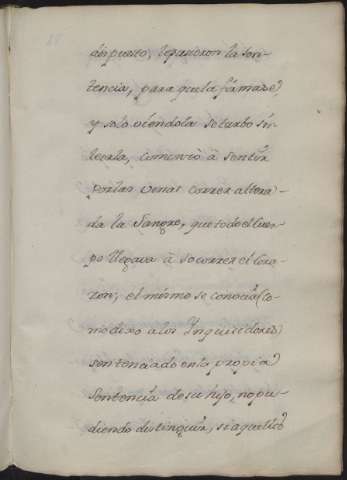 dispuesto, le pasieron la sen-
tencia, para que la firmase,
y solo viendola se turbo sin
leerla, comenzò à sentir
por las venas correr altera-
da la Sangre, que todo el cuer-
po llegava à socorrer el cora-
zon; el mismo se conocia (co-
mo dixo a los Inquisidores)
sentenciado en la propia
Sentencia de su hijo, no pu-
diendo distinguir, si aquel